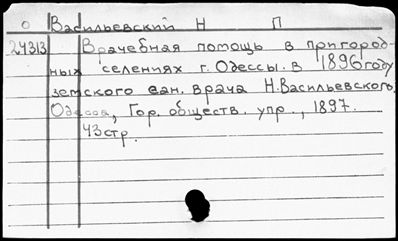 О Васильевский Н П
24313 Врачебная помощь в пригород-
ных селениях г. Одессы. в 1896 году
земского сан. врача Н.Васильевского.
Одесса, Гор. обществ. упр., 1897.
43стр.